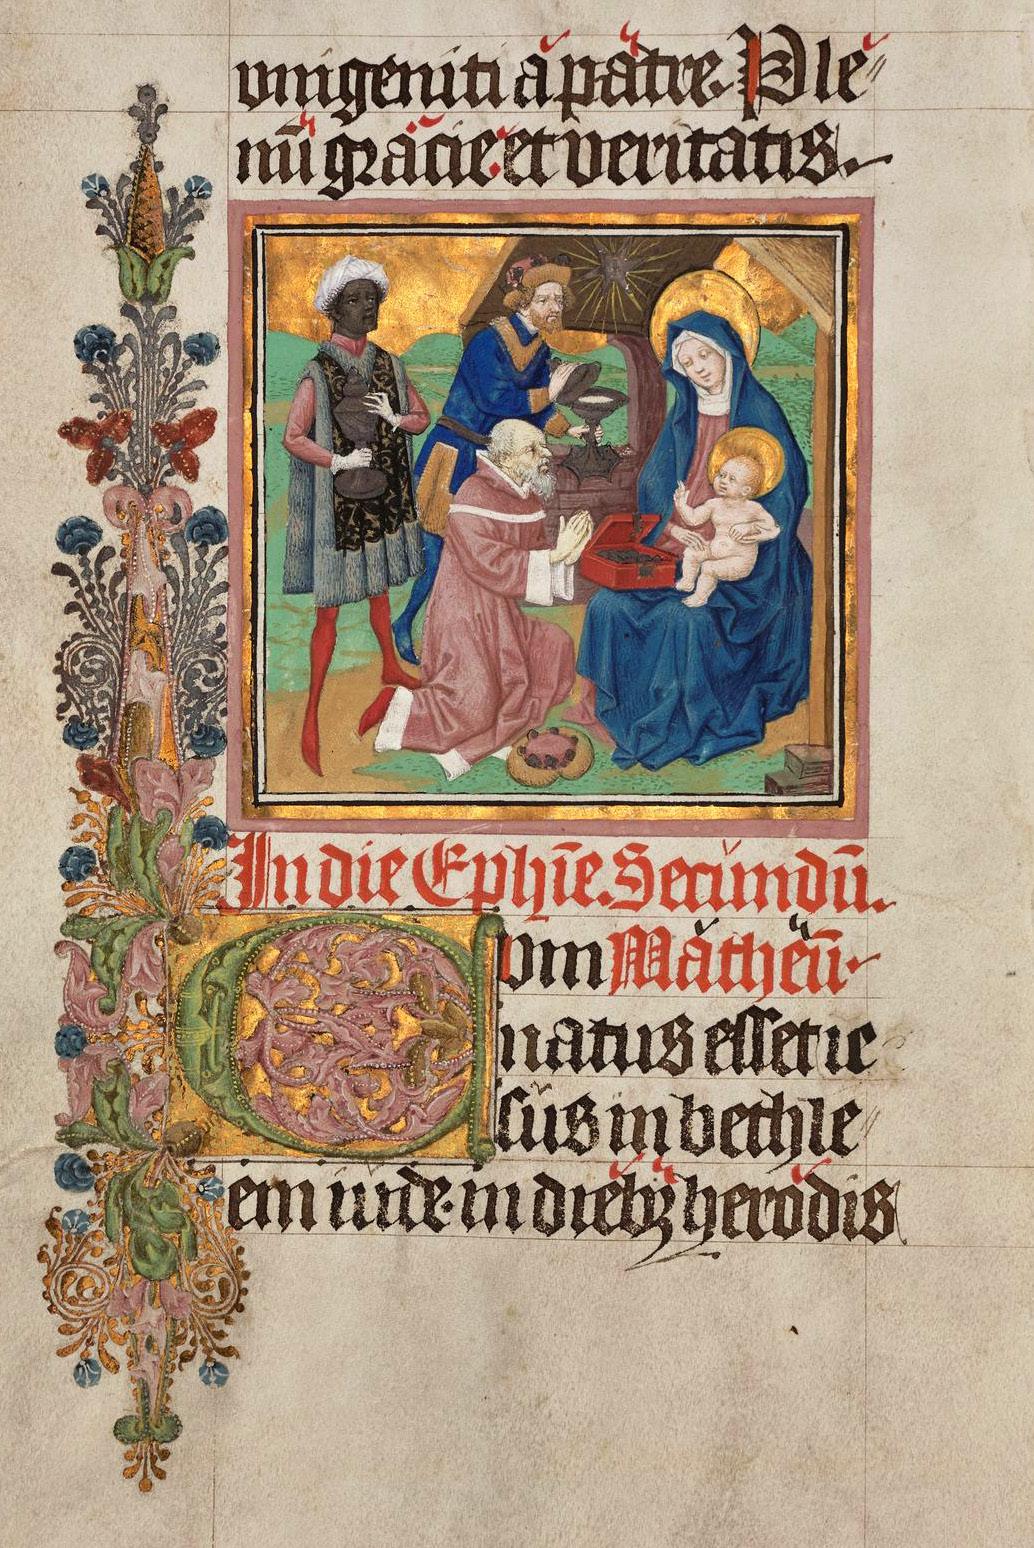 unigeniti a patre. Ple
nū gracie et veritatis.
In die Ephīe. Secundū.
Matheū.
Cum
natus esset ie
sus in bethle
em iude in diebꝫ herodis